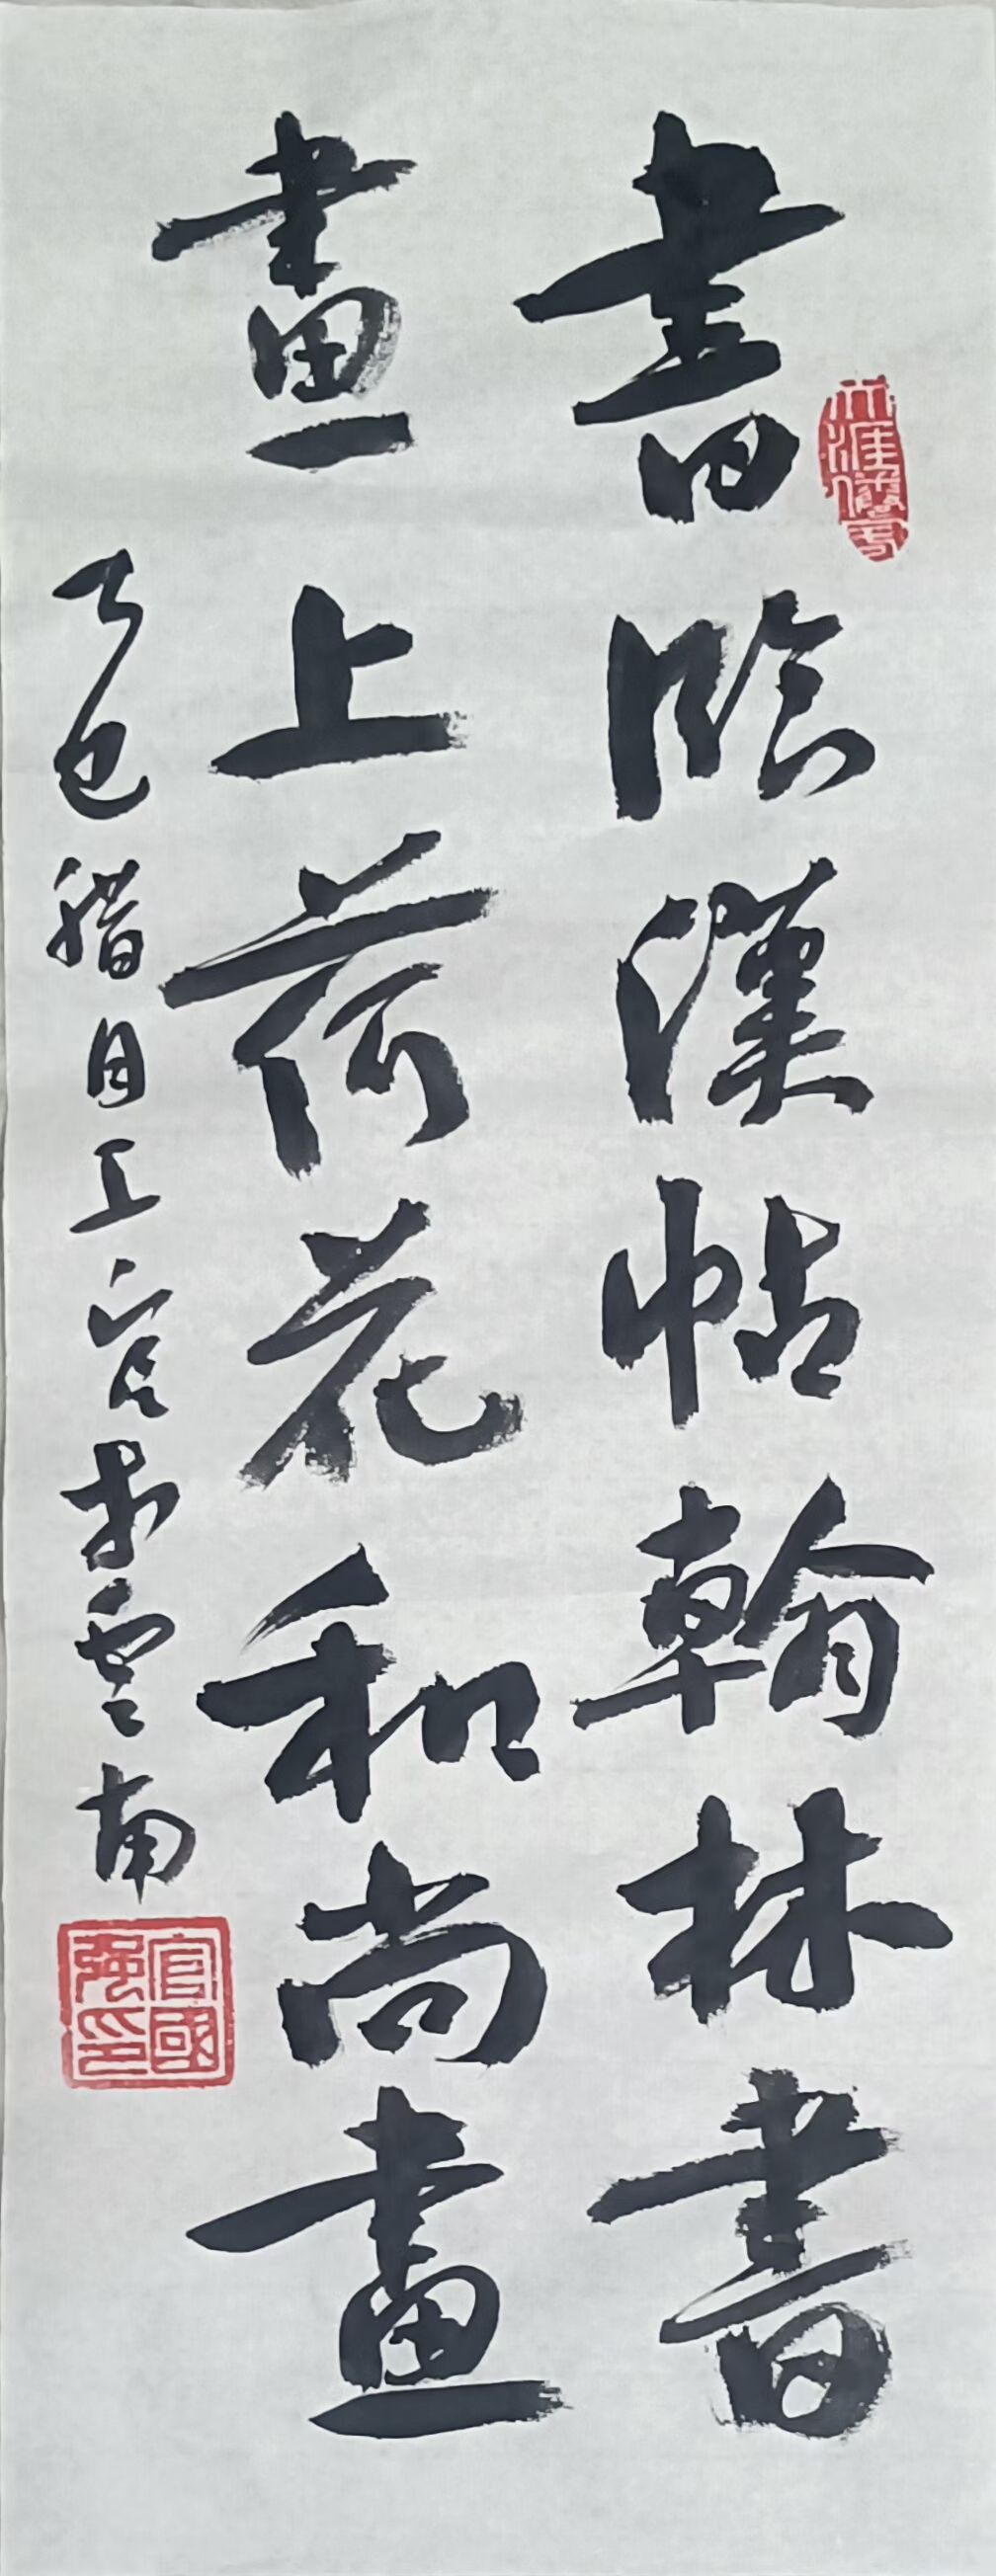 書臨漢帖翰林書
畫上荷花和尚畫
乙巳腊月上浣雲南
官國强印